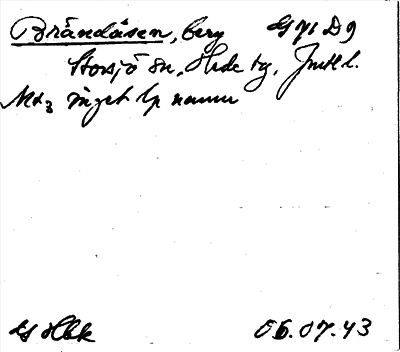 Brändåsen, berg Gs 71 D 9
Storsjö sn, Hrde tg, Jmtl l.
Mx3 inget lp namn
Gs Hbk 06.07.43